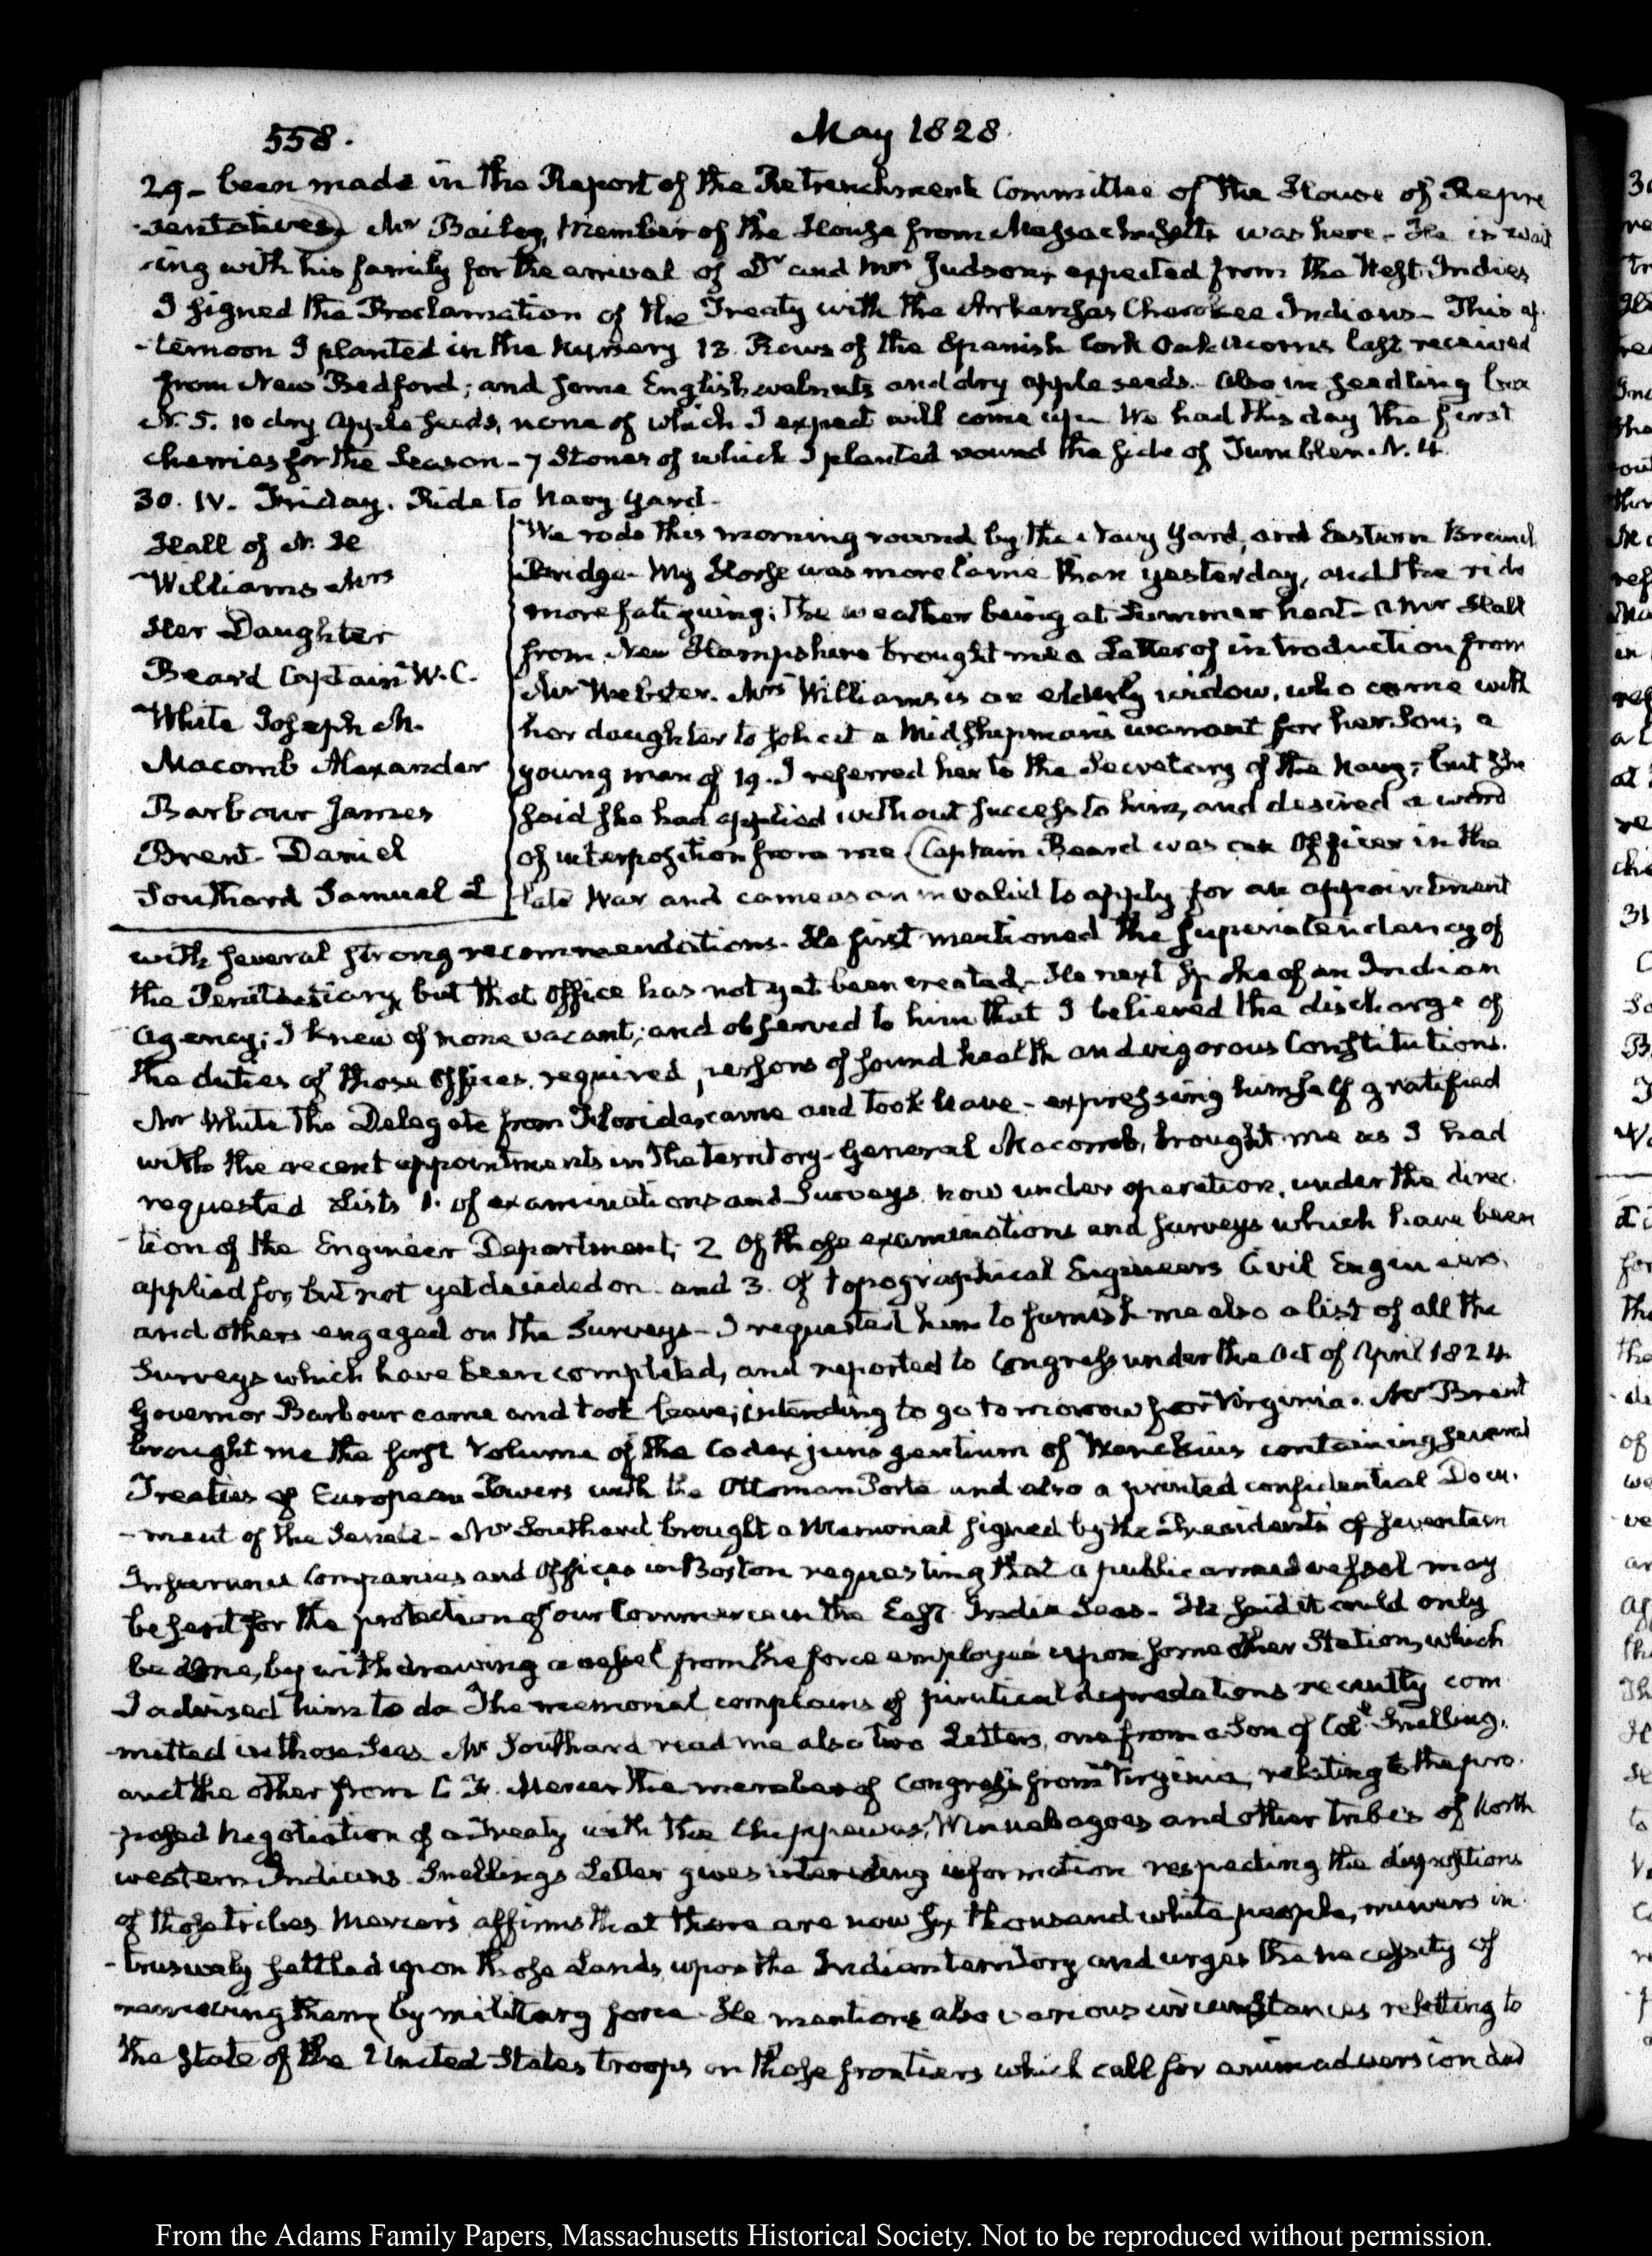 558.
May 1828.
29- been made in the Report of the Retrenchment Committee of the House of Repre
-sentatives) Mr Bailey, Member of the House from Massachusetts was here- He is wait
-ing with his family for the arrival of Dr and Mrs Judson, expected from the West-Indies
I signed the Proclamation of the Treaty with the Arkansas Cherokee Indians- This af.
-ternoon I planted in the Nursery 13 Rows of the Spanish Cork Oak acorns last received
from New Bedford; and some English walnuts and dry apple seeds- Also in seedling box
N. 5. 10 dry Apple seeds, none of which I expect will come up- We had this day the first
cherries for the Season- 7 Stones of which I planted round the side of Tumbler. N. 4.
30. IV. Friday. Ride to Navy Yard-
Hall of N. H
Williams Mrs
Her Daughter
Beard Captain W. C.
White Joseph M.
Macomb Alexander
Barbour James
Brent- Daniel
Southard Samuel L
We rode this morning round by the Navy Yard, and Eastern Branch
Bridge- My Horse was more lame than yesterday, and the ride
more fatiguing; the weather being at Summer heat- a Mr Hall
from New Hampshire brought me a Letter of introduction from
Mr Webster. Mrs Williams is an elderly widow, who came with
her daughter to solicit a Midshipman's warrant for her Son; a
young man of 19. I referred her to the Secretary of the Navy; but she
said she had applied without success to him, and desired a word
of interposition from me (Captain Beard was an Officer in the
late War and came as an invalid to apply for an appointment
with several strong recommendations. He first mentioned the Superintendency of
the Penitentiary, but that Office has not yet been created- He next spoke of an Indian
Agency; I knew of none vacant; and observed to him that I believed the discharge of
the duties of those Offices required persons of sound health and vigorous Constitutions.
Mr White the Delegate from Florida, came and took leave- expressing himself gratified
with the recent appointments in the territory- General Macomb, brought me as I had
requested Lists 1. of examinations and Surveys now under operation, under the direc
tion of the Engineer Department; 2 Of those examinations and surveys which have been
applied for, but not yet decided on and 3. Of topographical Engineers Civil Engineers,
and others engaged on the Surveys- I requested him to furnish me also a list of all the
Surveys which have been completed, and reported to Congress under the Act of April 1824
Governor Barbour came and took leave; intending to go tomorrow for Virginia. Mr Brent
brought me the first Volume of the Codex juris gentium of Wenckius containing several
Treaties of European Powers with the Ottoman Porte and also a printed confidential Docu.
-ment of the Senate- Mr Southard brought a Memorial signed by the Presidents of seventeen
Insurance Companies and Offices in Boston requesting that a public armed vessel may
be sent for the protection of our Commerce in the East India Seas- He said it could only
be done, by withdrawing a vessel from the force employed upon some other Station, which
I advised him to do The memorial complains of piratical depredations recently com
-mitted in those Seas Mr Southard read me also two Letters, one from a Son of Coll Snelling,
and the other from C. F. Mercer the member of Congress from Virginia, relating to the pro.
-posed Negotiation of a Treaty with the Chippewas, Winnebagoes and other tribes of North
western Indians Snelling's Letter gives interesting information respecting the dispositions
of those tribes Mercer's affirms that there are now six thousand white people, miners in
-trusively settled upon those Lands, upon the Indian territory and urges the necessity of
removing them by military force- He mentions also various circumstances relating to
the State of the United States troops on those frontiers which call for animadversion and
From the Adams Family Papers, Massachusetts Historical Society. Not to be reproduced without permission.